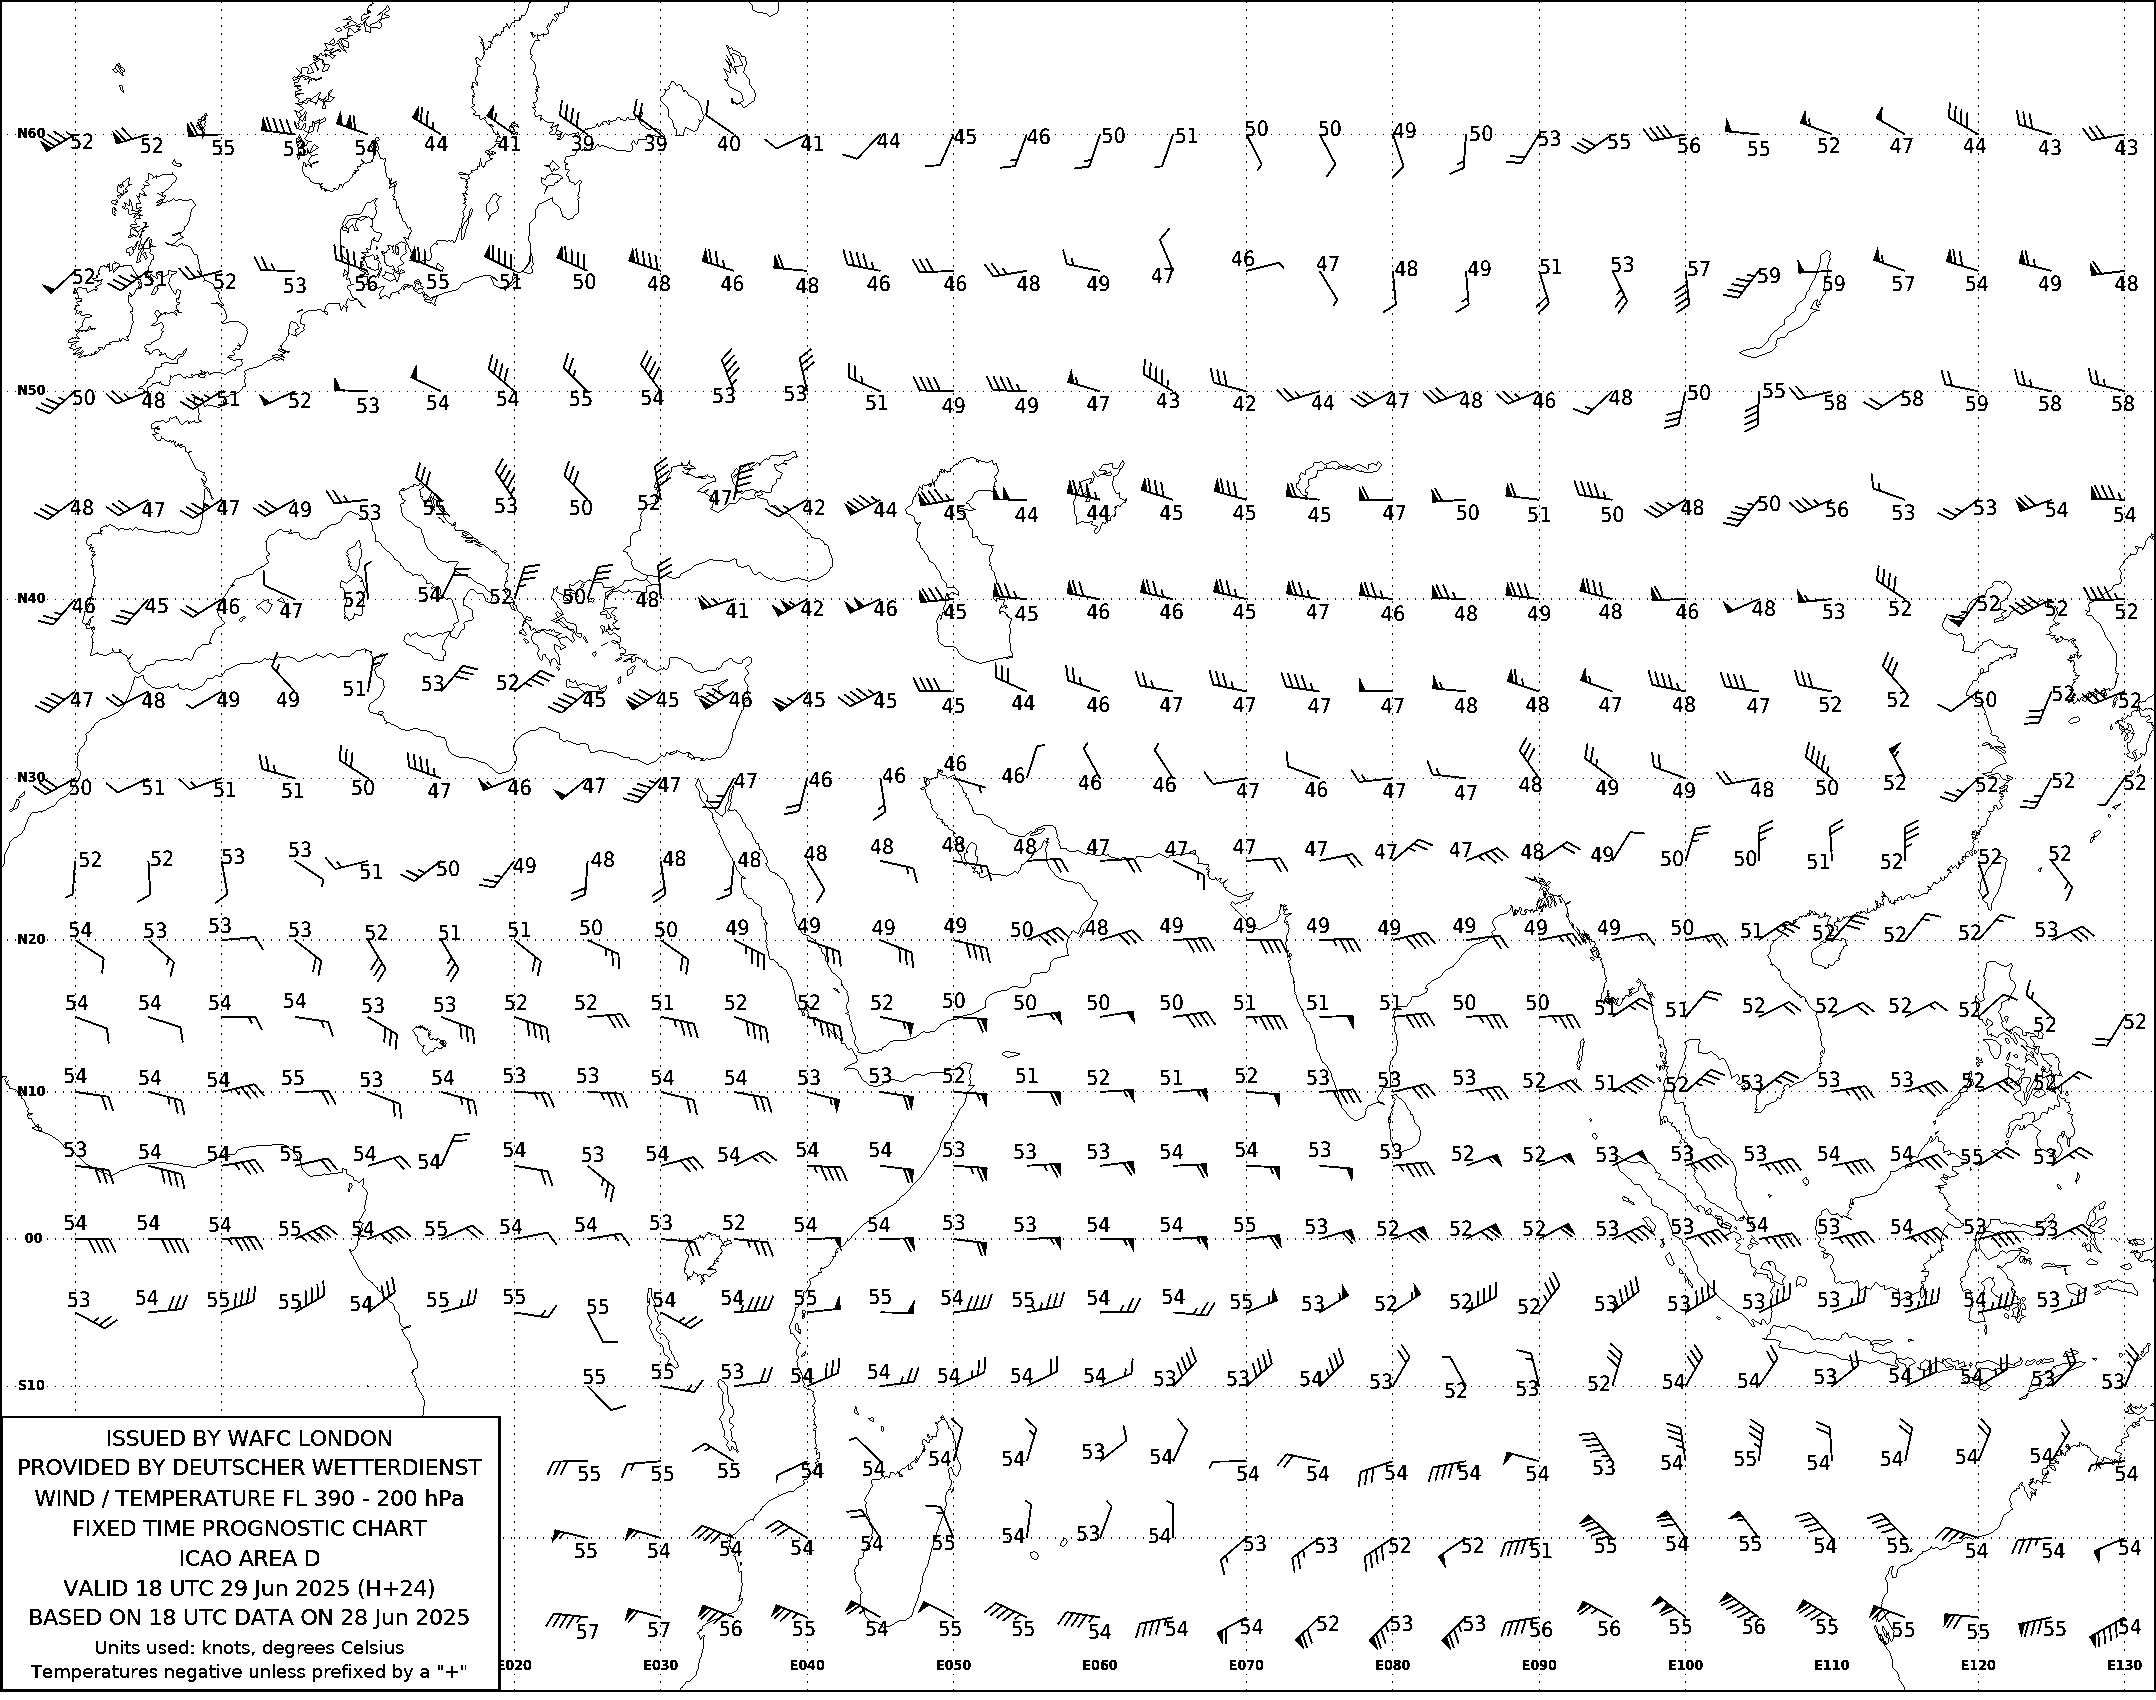 N60 52 52 55 53 54 44 41 39 39 40 41 44 45 46 50 51 50 50 49 50 53 55 56 55 52 47 44 43 43
52 51 52 53 56 55 51 50 48 46 48 46 46 48 49 47 46 47 48 49 51 53 57 59 59 57 54 49 48
N50 50 48 51 52 53 54 54 55 54 53 53 51 49 49 47 43 42 44 47 48 46 48 50 55 58 58 59 58 58
48 47 47 49 53 55 53 50 52 47 42 44 45 44 44 45 45 45 47 50 51 50 48 50 56 53 53 54 54
N40 46 45 46 47 52 54 52 50 48 41 42 46 45 45 46 46 45 47 46 48 49 48 46 48 53 52 52 52 52
47 48 49 49 51 53 52 45 45 46 45 45 45 44 46 47 47 47 47 48 48 47 48 47 52 52 50 52 52
N30 50 51 51 51 50 47 46 47 47 47 46 46 46 46 46 46 47 46 47 47 48 49 49 48 50 52 52 52 52
52 52 53 53 51 50 49 48 48 48 48 48 48 48 47 47 47 47 47 47 48 49 50 50 51 52 52 52
N20 54 53 53 53 52 51 51 50 50 49 49 49 49 50 48 49 49 49 49 49 49 49 50 51 52 52 52 53
54 54 54 54 53 53 52 52 51 52 52 52 50 50 50 50 51 51 51 50 50 51 51 52 52 52 52 52 52
N10 54 54 54 55 53 54 53 53 54 54 53 53 52 51 52 51 52 53 53 53 52 51 52 53 53 53 52 52
53 54 54 55 54 54 54 53 54 54 54 54 53 53 53 54 54 53 53 52 52 53 53 53 54 54 55 53
00 54 54 54 55 54 55 54 54 53 52 54 54 53 53 54 54 55 53 52 52 52 53 53 54 53 54 53 53
53 54 55 55 54 55 55 55 54 54 55 55 54 55 54 54 55 53 52 52 52 53 53 53 53 53 54 53
S10 55 55 53 54 54 54 54 54 53 53 54 53 52 53 52 54 54 53 54 54 53 53
55 55 55 54 54 54 54 53 54 54 54 54 54 54 53 54 55 54 54 54 54 54
55 54 54 54 54 55 54 53 54 53 53 52 52 51 55 54 55 54 55 54 54 54
57 57 56 55 54 55 55 54 54 54 52 53 53 56 56 55 56 55 55 55 55 54
E020 E030 E040 E050 E060 E070 E080 E090 E100 E110 E120 E130
ISSUED BY WAFC LONDON
PROVIDED BY DEUTSCHER WETTERDIENST
WIND / TEMPERATURE FL 390 - 200 hPa
FIXED TIME PROGNOSTIC CHART
ICAO AREA D
VALID 18 UTC 29 Jun 2025 (H+24)
BASED ON 18 UTC DATA ON 28 Jun 2025
Units used: knots, degrees Celsius
Temperatures negative unless prefixed by a "+"